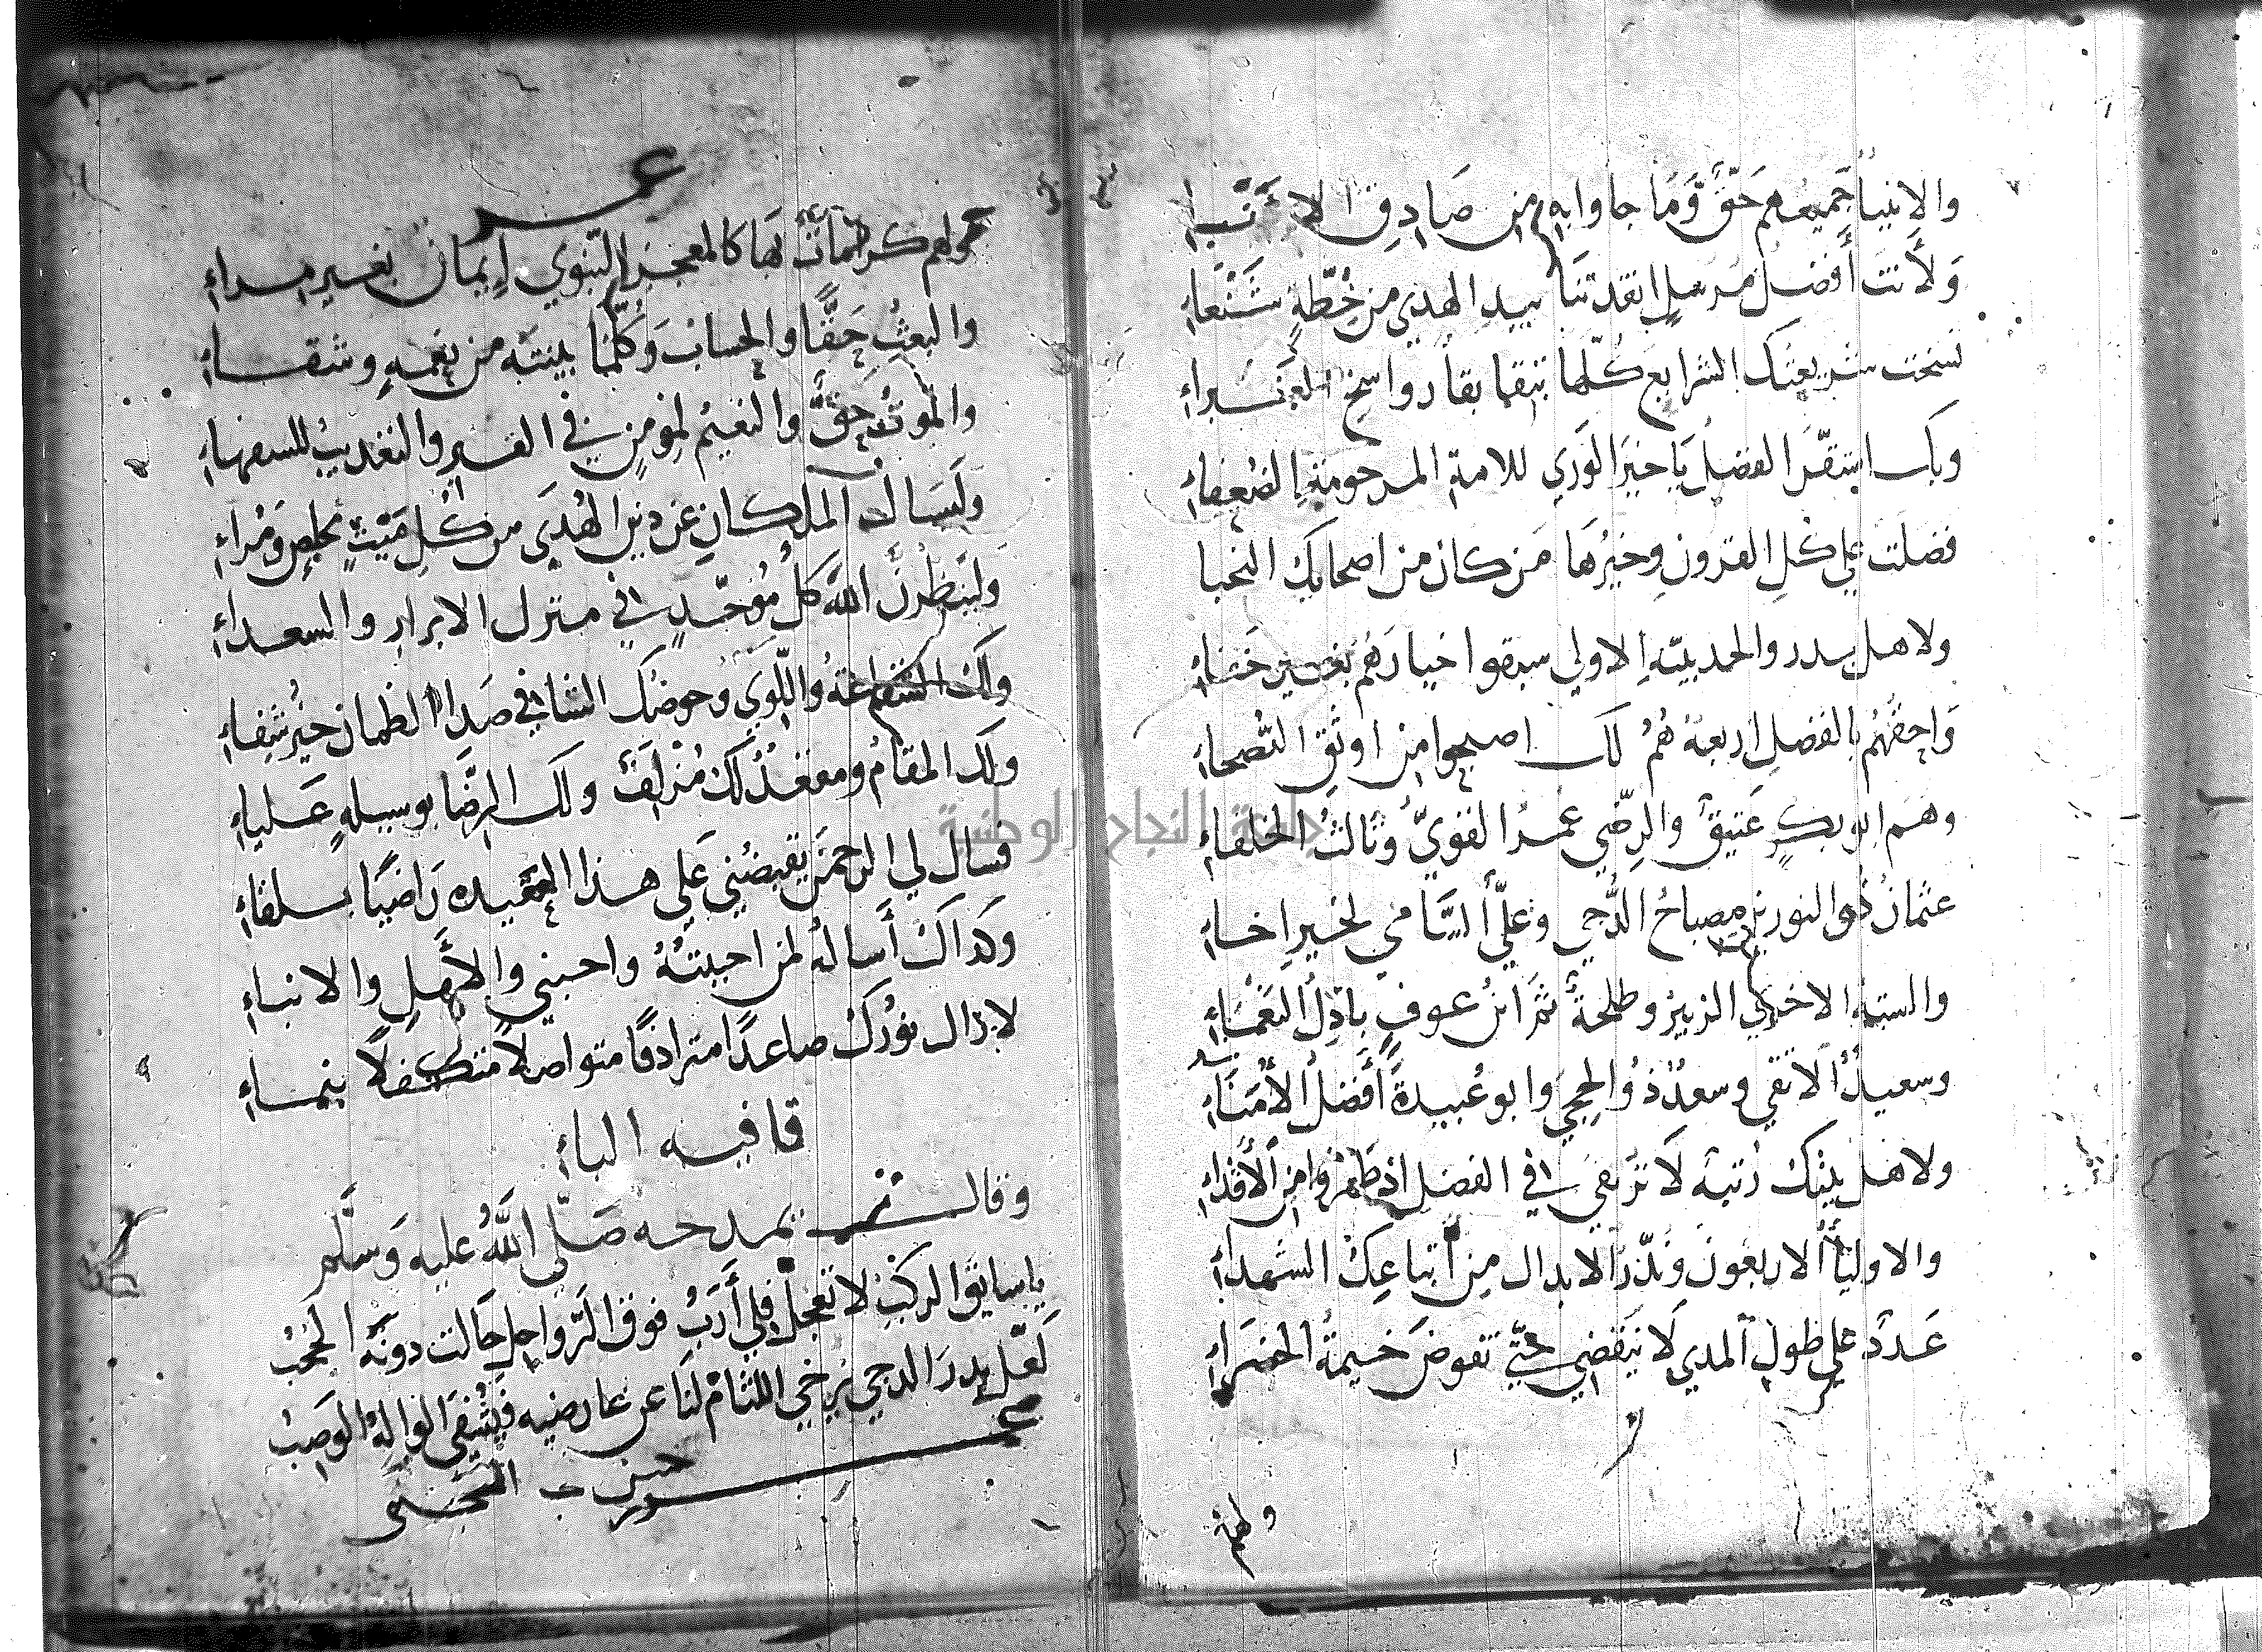 والانبيا جميعهم حق وما جاوا به من صادق الانبا
ولأنت أفضل مرسل انقدتنا بيد الهدي من خطة شنعاء
نسخت شريعتك الشرايع كلها ببقا رواسخ
وبك استقر الفضل يا خير الوري للامة المرحومة الضعفاء
فضلت علي كل القرون وخيرها من كان من اصحابك النجبا
ولاهل بدر والحديبية الاولي سبقوا خيارهم بغير خفاء
واحقهم بالفضل اربعة هم لك اصبحوا من اوثق النصحاء
وهم ابو بكر عتيق والرضي عمر القوي وثالث الخلفاء
عثمان ذو النورين مصباح الدجي وعلي السامي لخير اخاء
والستة الاخري الزبير وطلحة ثم ابن عوف باذل النعماء
وسعيد الاتقي وسعد ذو الحجي وابو عبيدة أفضل الأمناء
ولاهل بيتك رتبة لا ترتقي في الفضل اذ طهروا من الأقذاء
والاولياء الاربعون وبدر الابدال من أتباعك الشهداء
عدد علي طول المدي لا ينقضي حتي تقوض خيمة الخضراء
ولهم
عمر
ولهم كرامات لها كالمعجز النبوي إيمان بغير مراء
والبعث حقا والحساب وكلما بينته من نعمة وشقاء
والموت حق والنعيم لمومن في القبر والتعذيب للسفهاء
وليسال الملكان عن دين الهدي من كل ميت مخلص ومراء
ولينظرن الله كل موحد في منزل الابرار والسعداء
ولك الشفاعة واللوي وحوضك الشافي صدا الظمان خير شفاء
ولك المقام ومقعد لك مزلف ولك الرضا بوسيلة علياء
فسال لي الرحمن يقبضني علي هذا العقيده راضيا بلقاء
وكداك أساله لمن احببته واحبني والأهل والابناء
لا زال نورك صاعدا مترادفا متواصلا متكفلا بنماء
قافيه الباء
وقال يمدحه صلى الله عليه وسلم
يا سايق الركب لا تعجل فلي أرب فوق الرواحل حالت دونه الحجب
لعل بدر الدجي يرخي اللثام لنا عن عارضيه فيشفي الواله الوصب
جامعة النجاح الوطنية